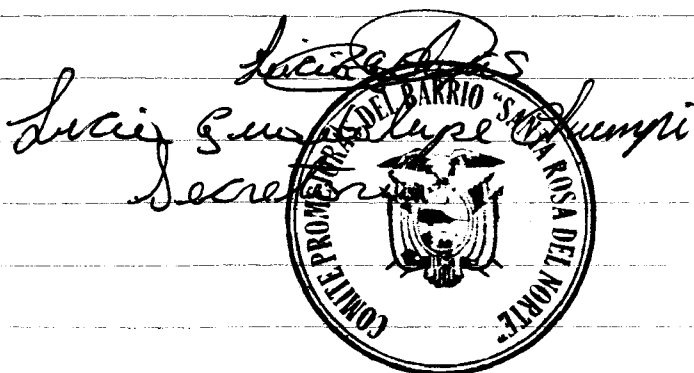 Lucía Guadalupe
Secretaria
COMITE PROMEJORAS DEL BARRIO "SANTA ROSA DEL NORTE"